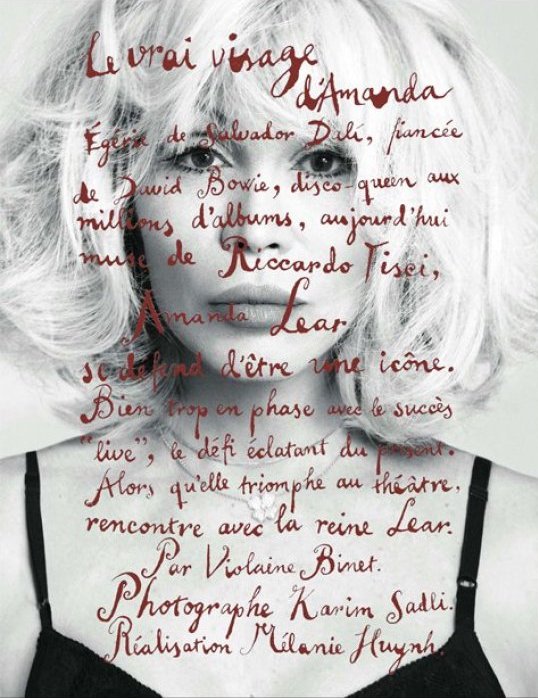 Le vrai visage
d'Amanda
Égérie de Salvador Dalí, fiancée
de David Bowie, disco-queen aux
millions d'albums, aujourd'hui
muse de Riccardo Tisci,
Amanda Lear
se défend d'être une icône.
Bien trop en phase avec le succès
"live", le défi éclatant du présent.
Alors qu'elle triomphe au théâtre,
rencontre avec la reine Lear.
Par Violaine Binet.
Photographe Karim Sadli.
Réalisation Mélanie Huynh.